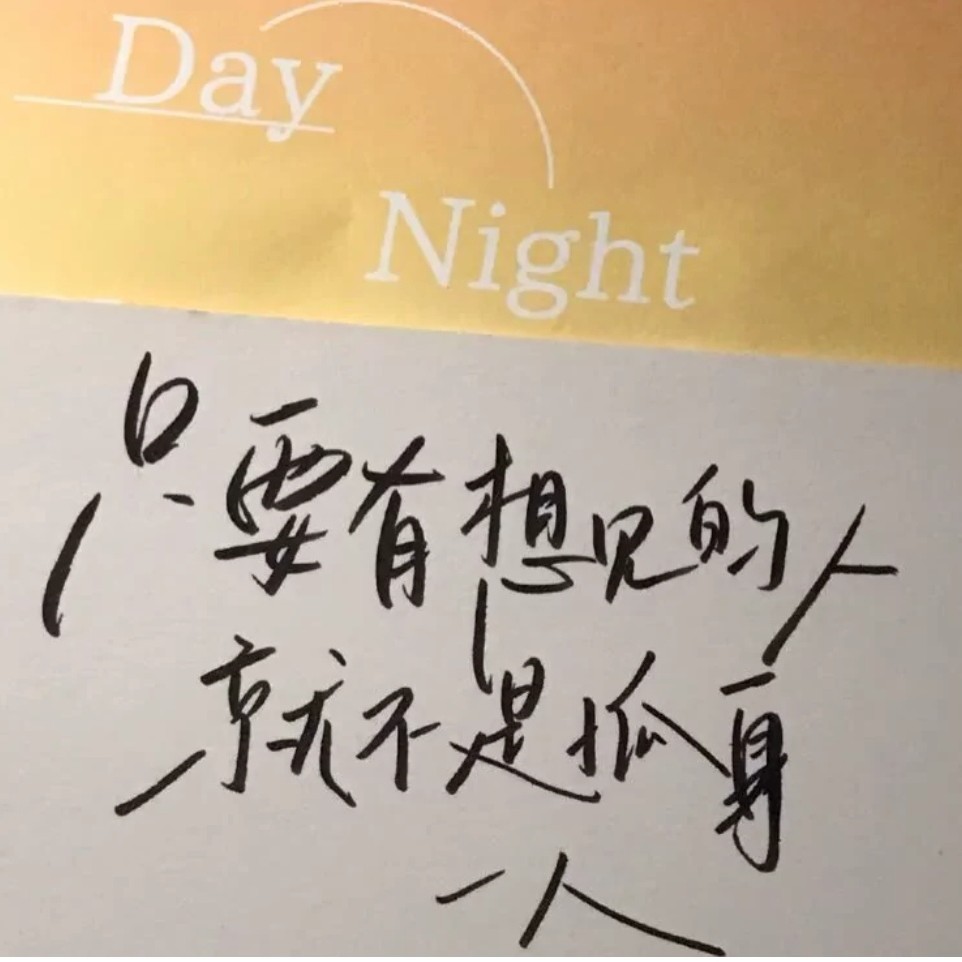 Day
Night
只要有想见的人
就不是孤身
一人